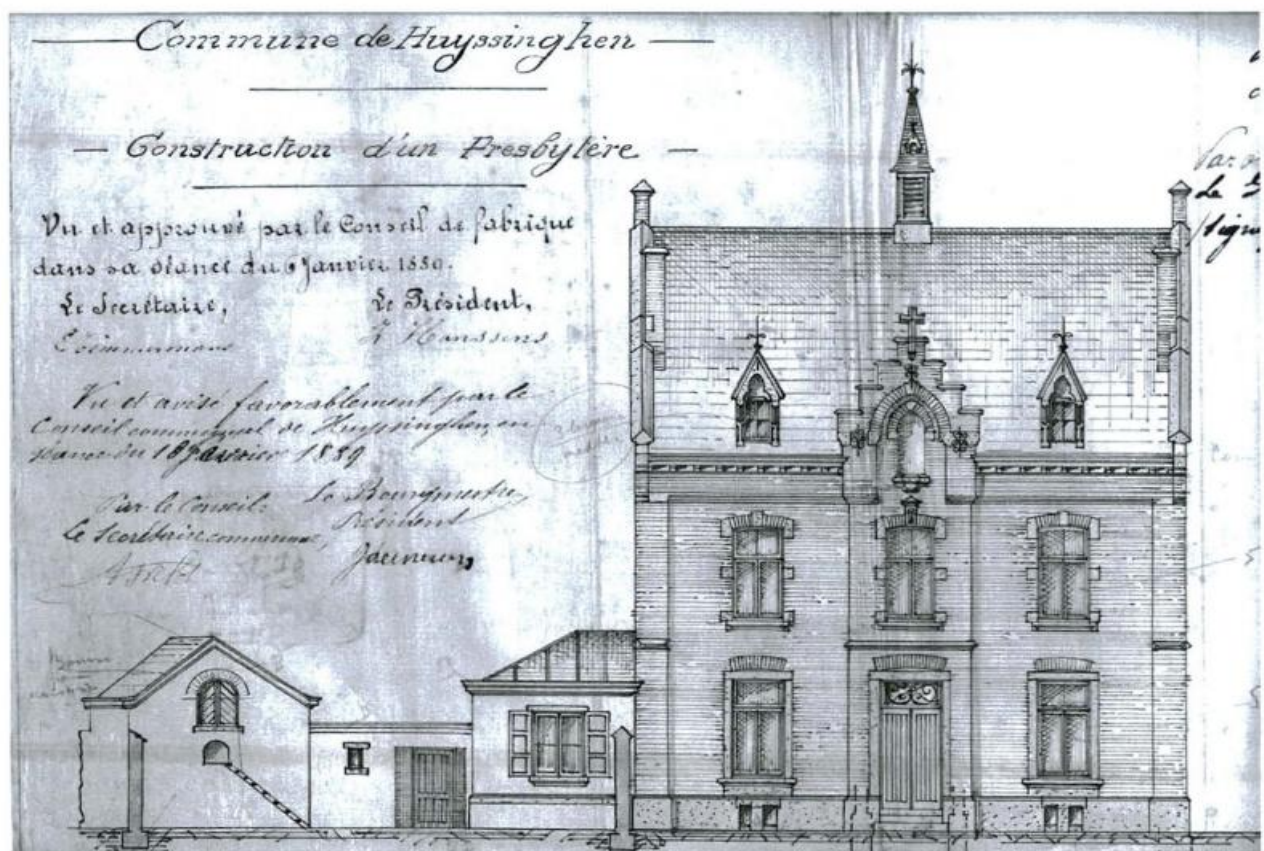 Commune de Huyssinghen
Construction d'un Presbytère
Vu et approuvé par le Conseil de fabrique
dans sa séance du 6 Janvier 1889.
Le Secrétaire, Le Président,
Hanssens
Vu et avisé favorablement par le
Conseil communal de Huyssinghen, en
séance du 18 Janvier 1889
Par le Conseil: Le Bourgmestre,
Président
Le Secrétaire communal,
Par
Le